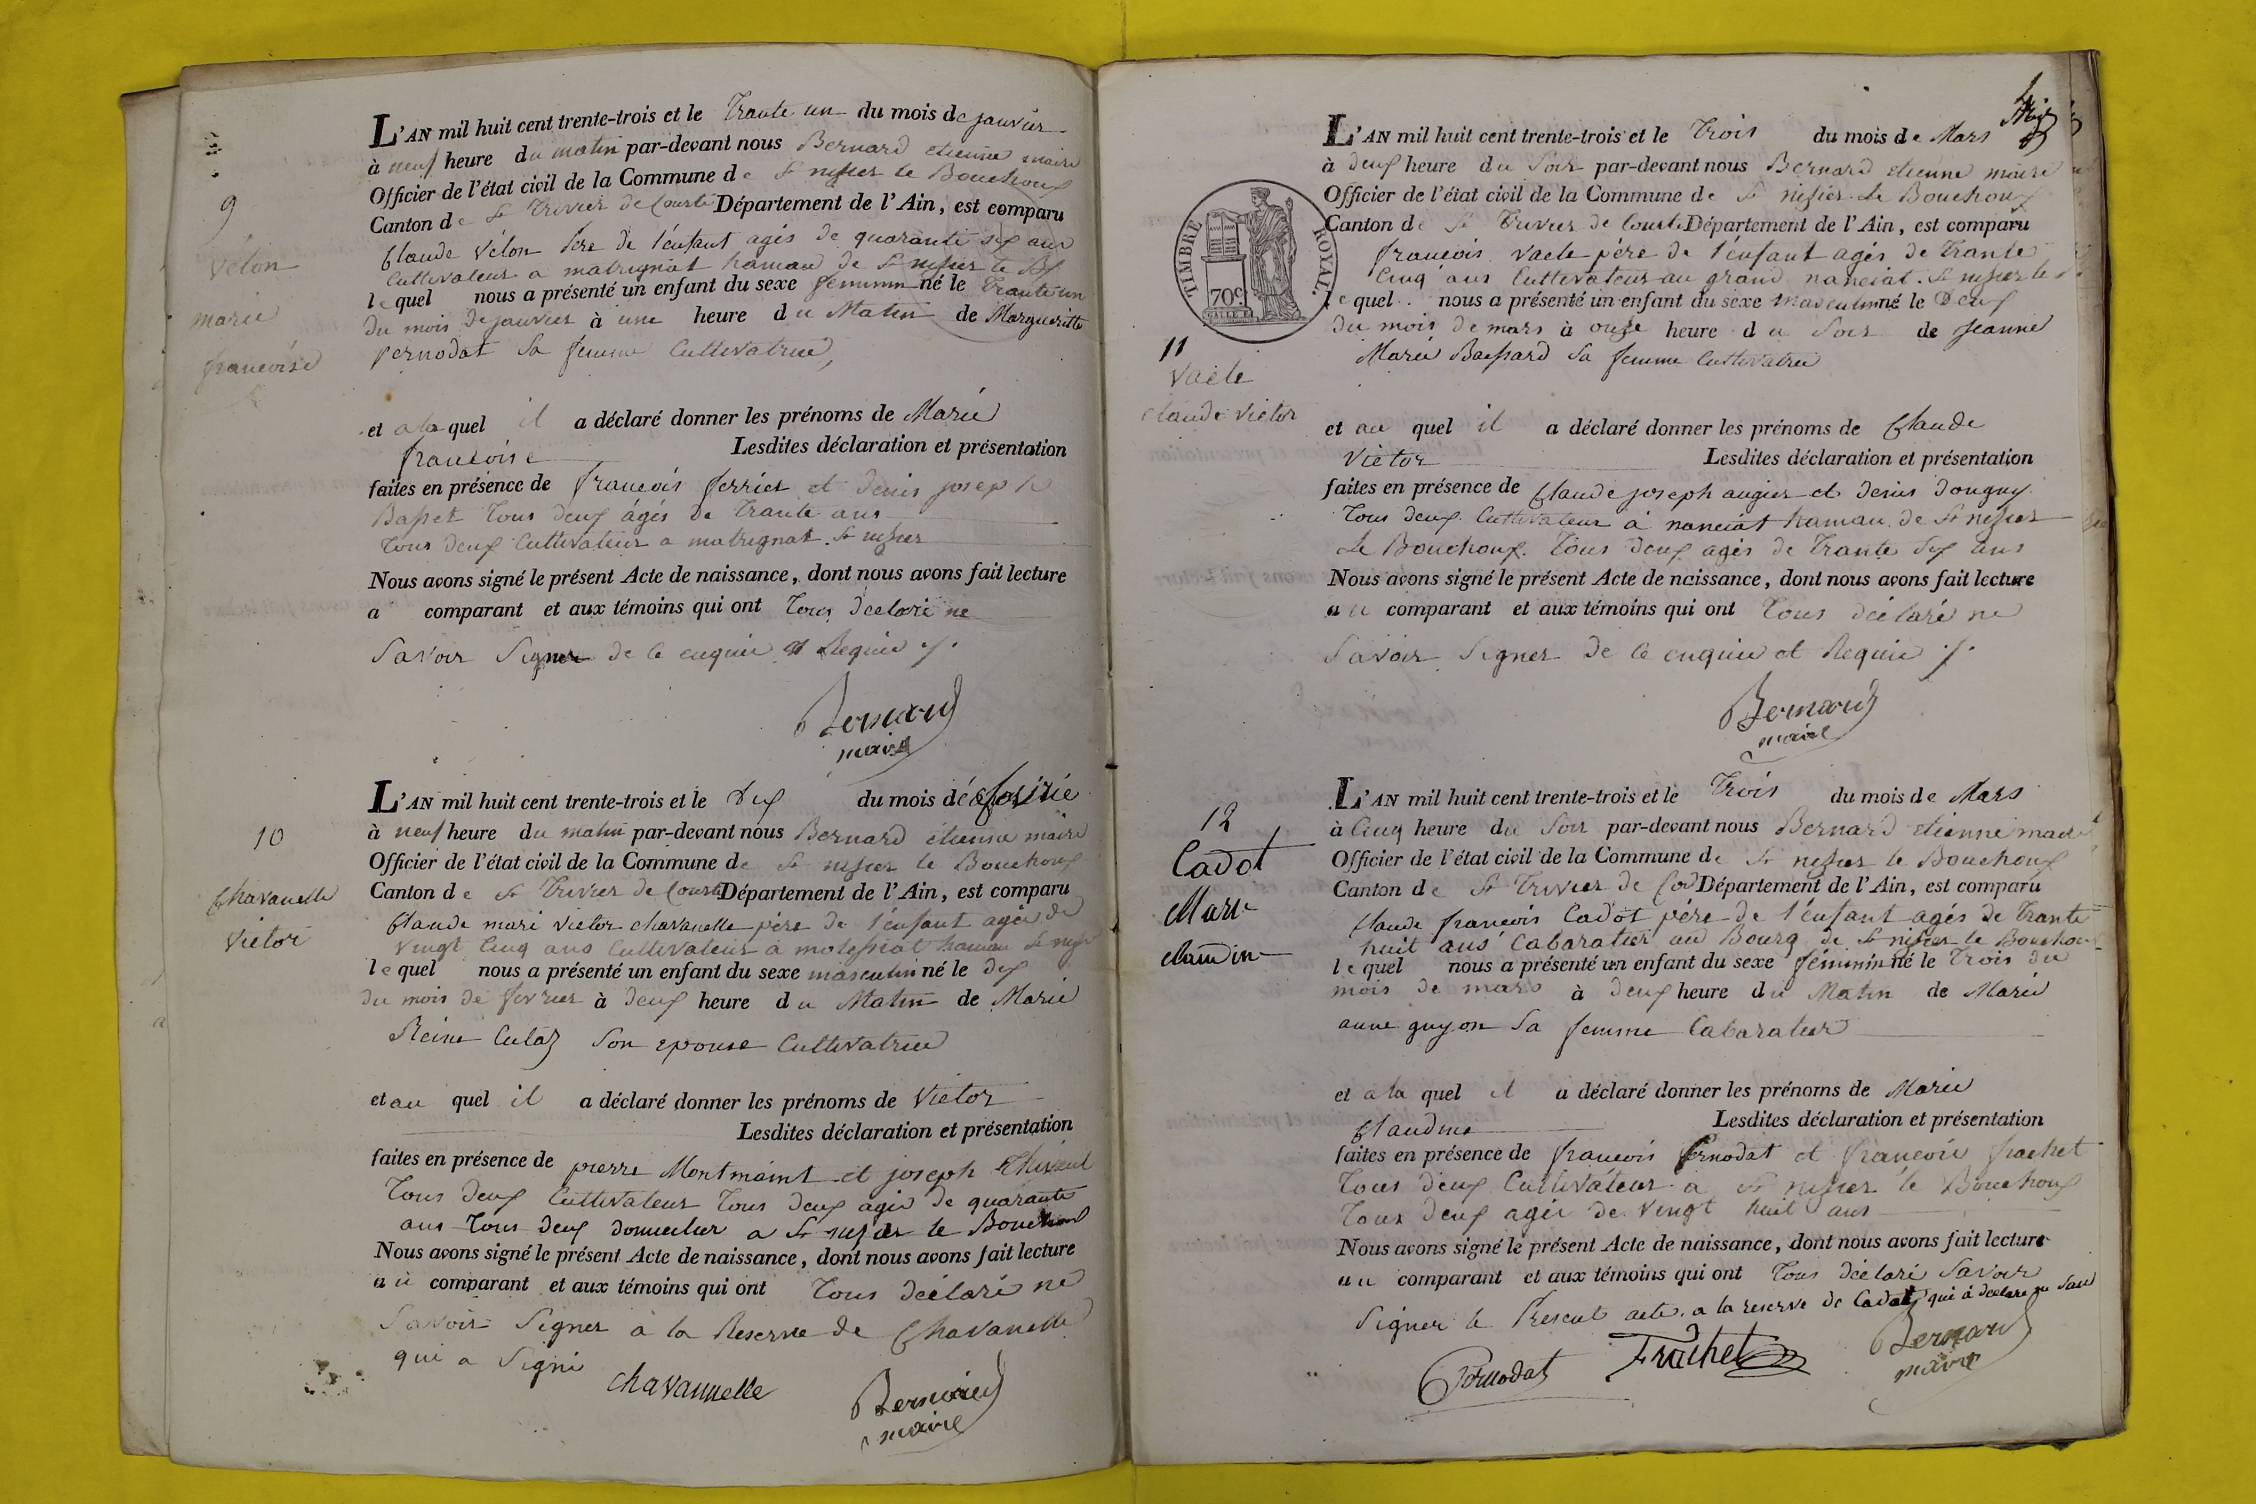 9
Vélon
marie
francoise
L'AN mil huit cent trente-trois et le Trante un du mois de janvier
à neuf heure du matin par-devant nous Bernard etienne maire
Officier de l'état civil de la Commune de St nisier le Bouchoux
Canton de St Trivier de Courte Département de l'Ain, est comparu
Claude Vélon Pere de l'enfant agés de quarante six ans
Cultivateur a matrignat hamau de St nisier le Bx
lequel nous a présenté un enfant du sexe feminin né le Trante un
du mois de janvier à une heure du Matin de Margueritte
pernodat Sa femme Cultivatrice,
et a la quel il a déclaré donner les prénoms de Marie
francoise Lesdites déclaration et présentation
faites en présence de francois ferrier et denis joseph
Basset Tous deux ágés De Trante ans
Tous deux Cultivateur a matrignat St nisier
Nous avons signé le présent Acte de naissance, dont nous avons fait lecture
a comparant et aux témoins qui ont Tous déclaré ne
Savoir Signer de ce enquie et Requie
Bernard
maire
10
Chavanelle
Victor
L'AN mil huit cent trente-trois et le Dix du mois de
à neuf heure du matin par-devant nous Bernard étienne maire
Officier de l'état civil de la Commune de St nisier le Bouchoux
Canton de St Trivier de Courte Département de l'Ain, est comparu
Claude marie Victor chavanelle père de l'enfant agée de
vingt Cinq ans Cultivateur à molissiat hamau St nisier
lequel nous a présenté un enfant du sexe masculin né le dix
du mois de fevrier à deux heure du Matin de Marie
Reine Culaz Son epouse Cultivatrice
et au quel il a déclaré donner les prénoms de Victor
Lesdites déclaration et présentation
faites en présence de pierre Montmaint et joseph
Tous deux Cultivateur Tous deux agée de quarante
ans Tous deux domicilier a St nisier le Bouchoux
Nous avons signé le présent Acte de naissance, dont nous avons fait lecture
au comparant et aux témoins qui ont Tous déclaré ne
Savoir Signer à la Reserve de Chavanelle
qui a Signé
chavannelle
Bernard
maire
TIMBRE ROYAL.
70c
11
Vacle
claude victor
L'AN mil huit cent trente-trois et le Trois du mois de Mars
à deux heure du Soir par-devant nous Bernard etienne maire
Officier de l'état civil de la Commune de St nisier Le Bouchoux
Canton de St Trivier de Courte Département de l'Ain, est comparu
francois vacle père de l'enfant agés de Trante
Cinq ans Cultivateur au grand nanciat St nisier le
lequel nous a présenté un enfant du sexe masculin né le Deux
du mois de mars à onze heure du Soir de Jeanne
Marie Bassard Sa femme Cultivatrice
et au quel il a déclaré donner les prénoms de Claude
Victor Lesdites déclaration et présentation
faites en présence de Claude joseph augier et denis douguy
Tous deux Cultivateur à nanciat hamau de St nisier
Le Bouchoux Tous deux agés de Trante Six ans
Nous avons signé le présent Acte de naissance, dont nous avons fait lecture
au comparant et aux témoins qui ont Tous déclaré ne
Savoir Signer de ce enquie et Requie
Bernard
maire
12
Cadot
Marie
claudine
L'AN mil huit cent trente-trois et le Trois du mois de Mars
à Cinq heure du Soir par-devant nous Bernard etienne maire
Officier de l'état civil de la Commune de St nisier le Bouchoux
Canton de St Trivier de Cod Département de l'Ain, est comparu
Claude francois Cadot père de l'enfant agés de Trante
huit ans Cabaratier au Bourg de St nisier le Bouchoux
lequel nous a présenté un enfant du sexe féminin né le Trois du
mois de mars à deux heure du Matin de Marie
anne guyon Sa femme Cabaratier
et a la quel il a déclaré donner les prénoms de Marie
Claudine Lesdites déclaration et présentation
faites en présence de francois Pernodat et francois frachet
Tous deux Cultivateur a St nisier le Bouchoux
Tous deux agée de vingt huit ans
Nous avons signé le présent Acte de naissance, dont nous avons fait lecture
au comparant et aux témoins qui ont Tous déclaré Savoir
Signer le Present acte a la reserve de Cadot qui à declare ne Savoir
Pernodat
Frachet
Bernard
maire